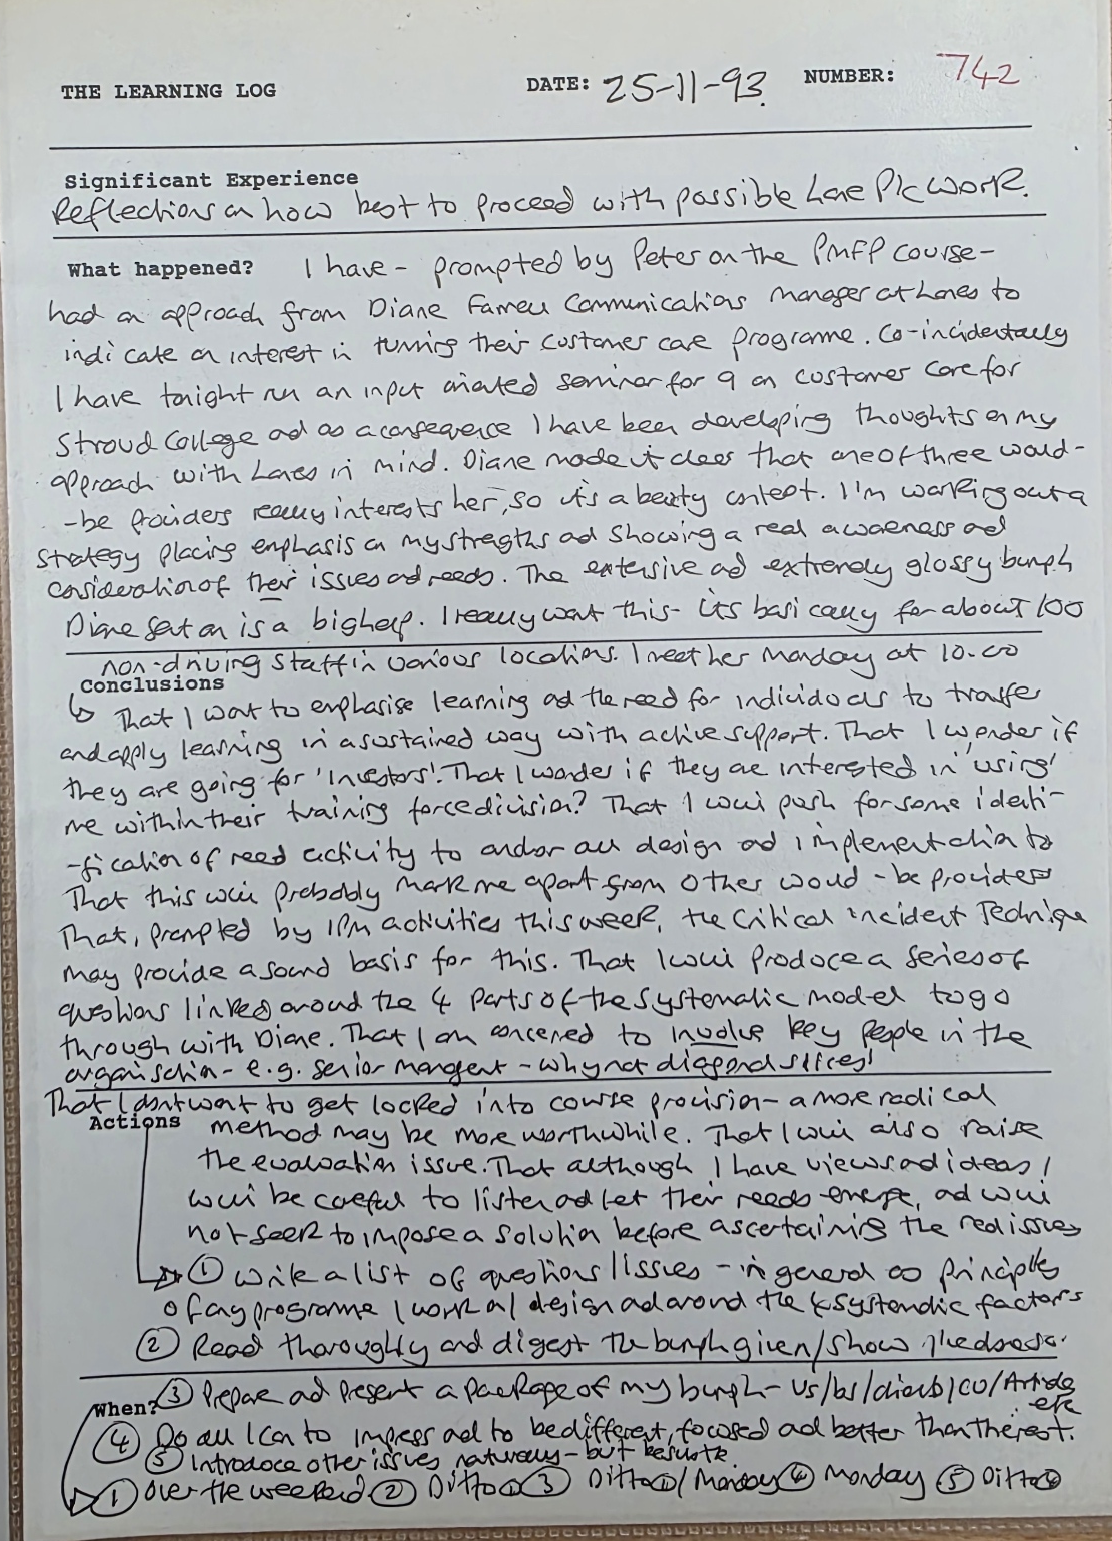 THE LEARNING LOG DATE: 25-11-93. NUMBER: 742
Significant Experience
Reflections on how best to proceed with possible Lane Plc work.
What happened? I have - prompted by Peter on the PMFP course -
had an approach from Diane Communications Manager at Lanes to
indicate an interest in running their customer care programme. Co-incidentally
I have tonight run an input seminar for 9 on customer care for
Stroud College and as a consequence I have been developing thoughts on my
approach with Lanes in mind. Diane made it clear that one of three would-
-be providers really interests her, so it's a beauty contest. I'm working out a
strategy placing emphasis on my strengths and showing a real awareness and
consideration of their issues and needs. The extensive and extremely glossy bumph
Diane sent on is a big help. I really want this - its basically for about 100
non-driving staff in various locations. I meet her Monday at 10.00
Conclusions
That I want to emphasise learning and the need for individuals to transfer
and apply learning in a sustained way with active support. That I wonder if
they are going for 'Investors'. That I wonder if they are interested in 'using'
me within their training force division? That I will push for some identi-
-fication of need activity to anchor all design and implementation to
That this will probably mark me apart from other would-be providers
That, prompted by IPM activities this week, the Critical Incident Technique
may provide a sound basis for this. That I will produce a series of
questions linked around the 4 parts of the systematic model to go
through with Diane. That I am concerned to involve key people in the
organisation - e.g. senior management - why not diagonal slices!
That I don't want to get locked into course provision - a more radical
Actions method may be more worthwhile. That I will also raise
the evaluation issue. That although I have views and ideas I
will be careful to listen and let their needs emerge, and will
not seek to impose a solution before ascertaining the real issues
① Write a list of questions/issues - in general as principles
of any programme I work on/design and around the 4 systematic factors
② Read thoroughly and digest the bumph given/show I've done so.
③ Prepare and present a package of my bumph - /CV/Article
When? etc
④ Do all I can to impress and to be different, focused and better than the rest.
⑤ Introduce other issues naturally - but
① Over the weekend ② Ditto ① ③ Ditto ①/Monday ④ Monday ⑤ Ditto ④